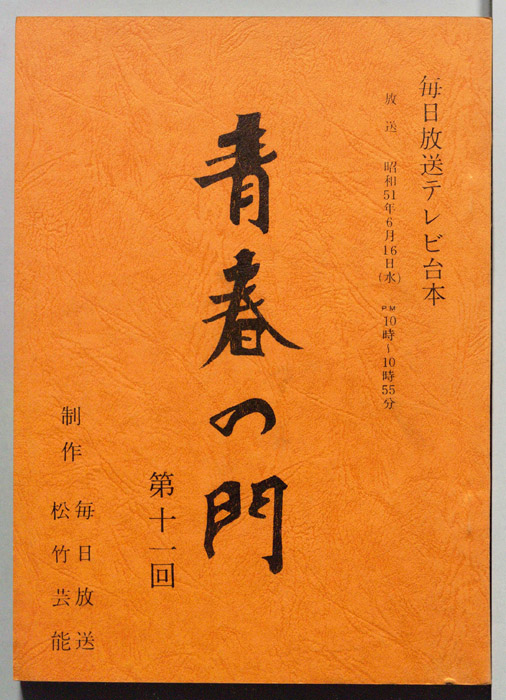 毎日放送テレビ台本
放送 昭和51年6月16日(水) PM10時〜10時55分
青春の門
第十一回
制作 毎日放送
松竹芸能